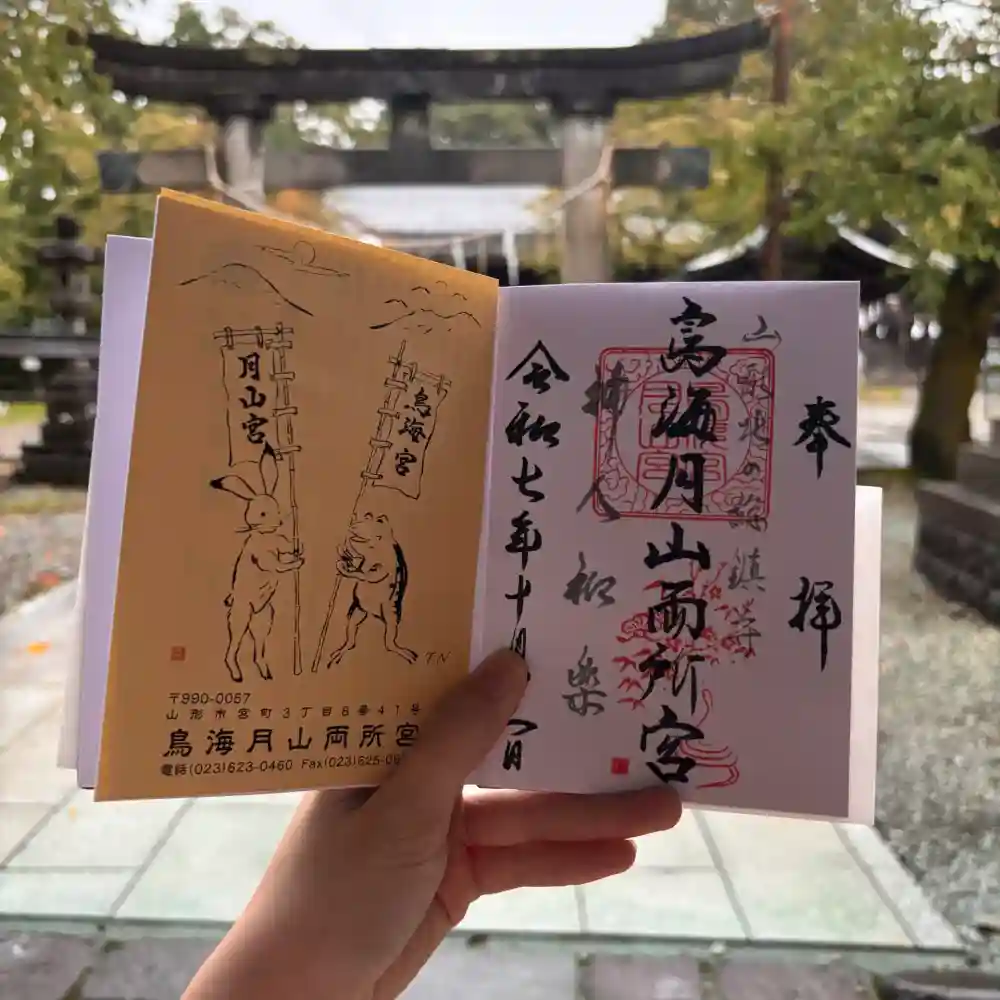 月山宮
鳥海宮
T.N
〒990-0057
山形市宮町3丁目8番41号
鳥海月山両所宮
電話(023)623-0460 Fax(023)625-0
奉拝
鳥海月山両所宮
神人和楽
令和七年十月